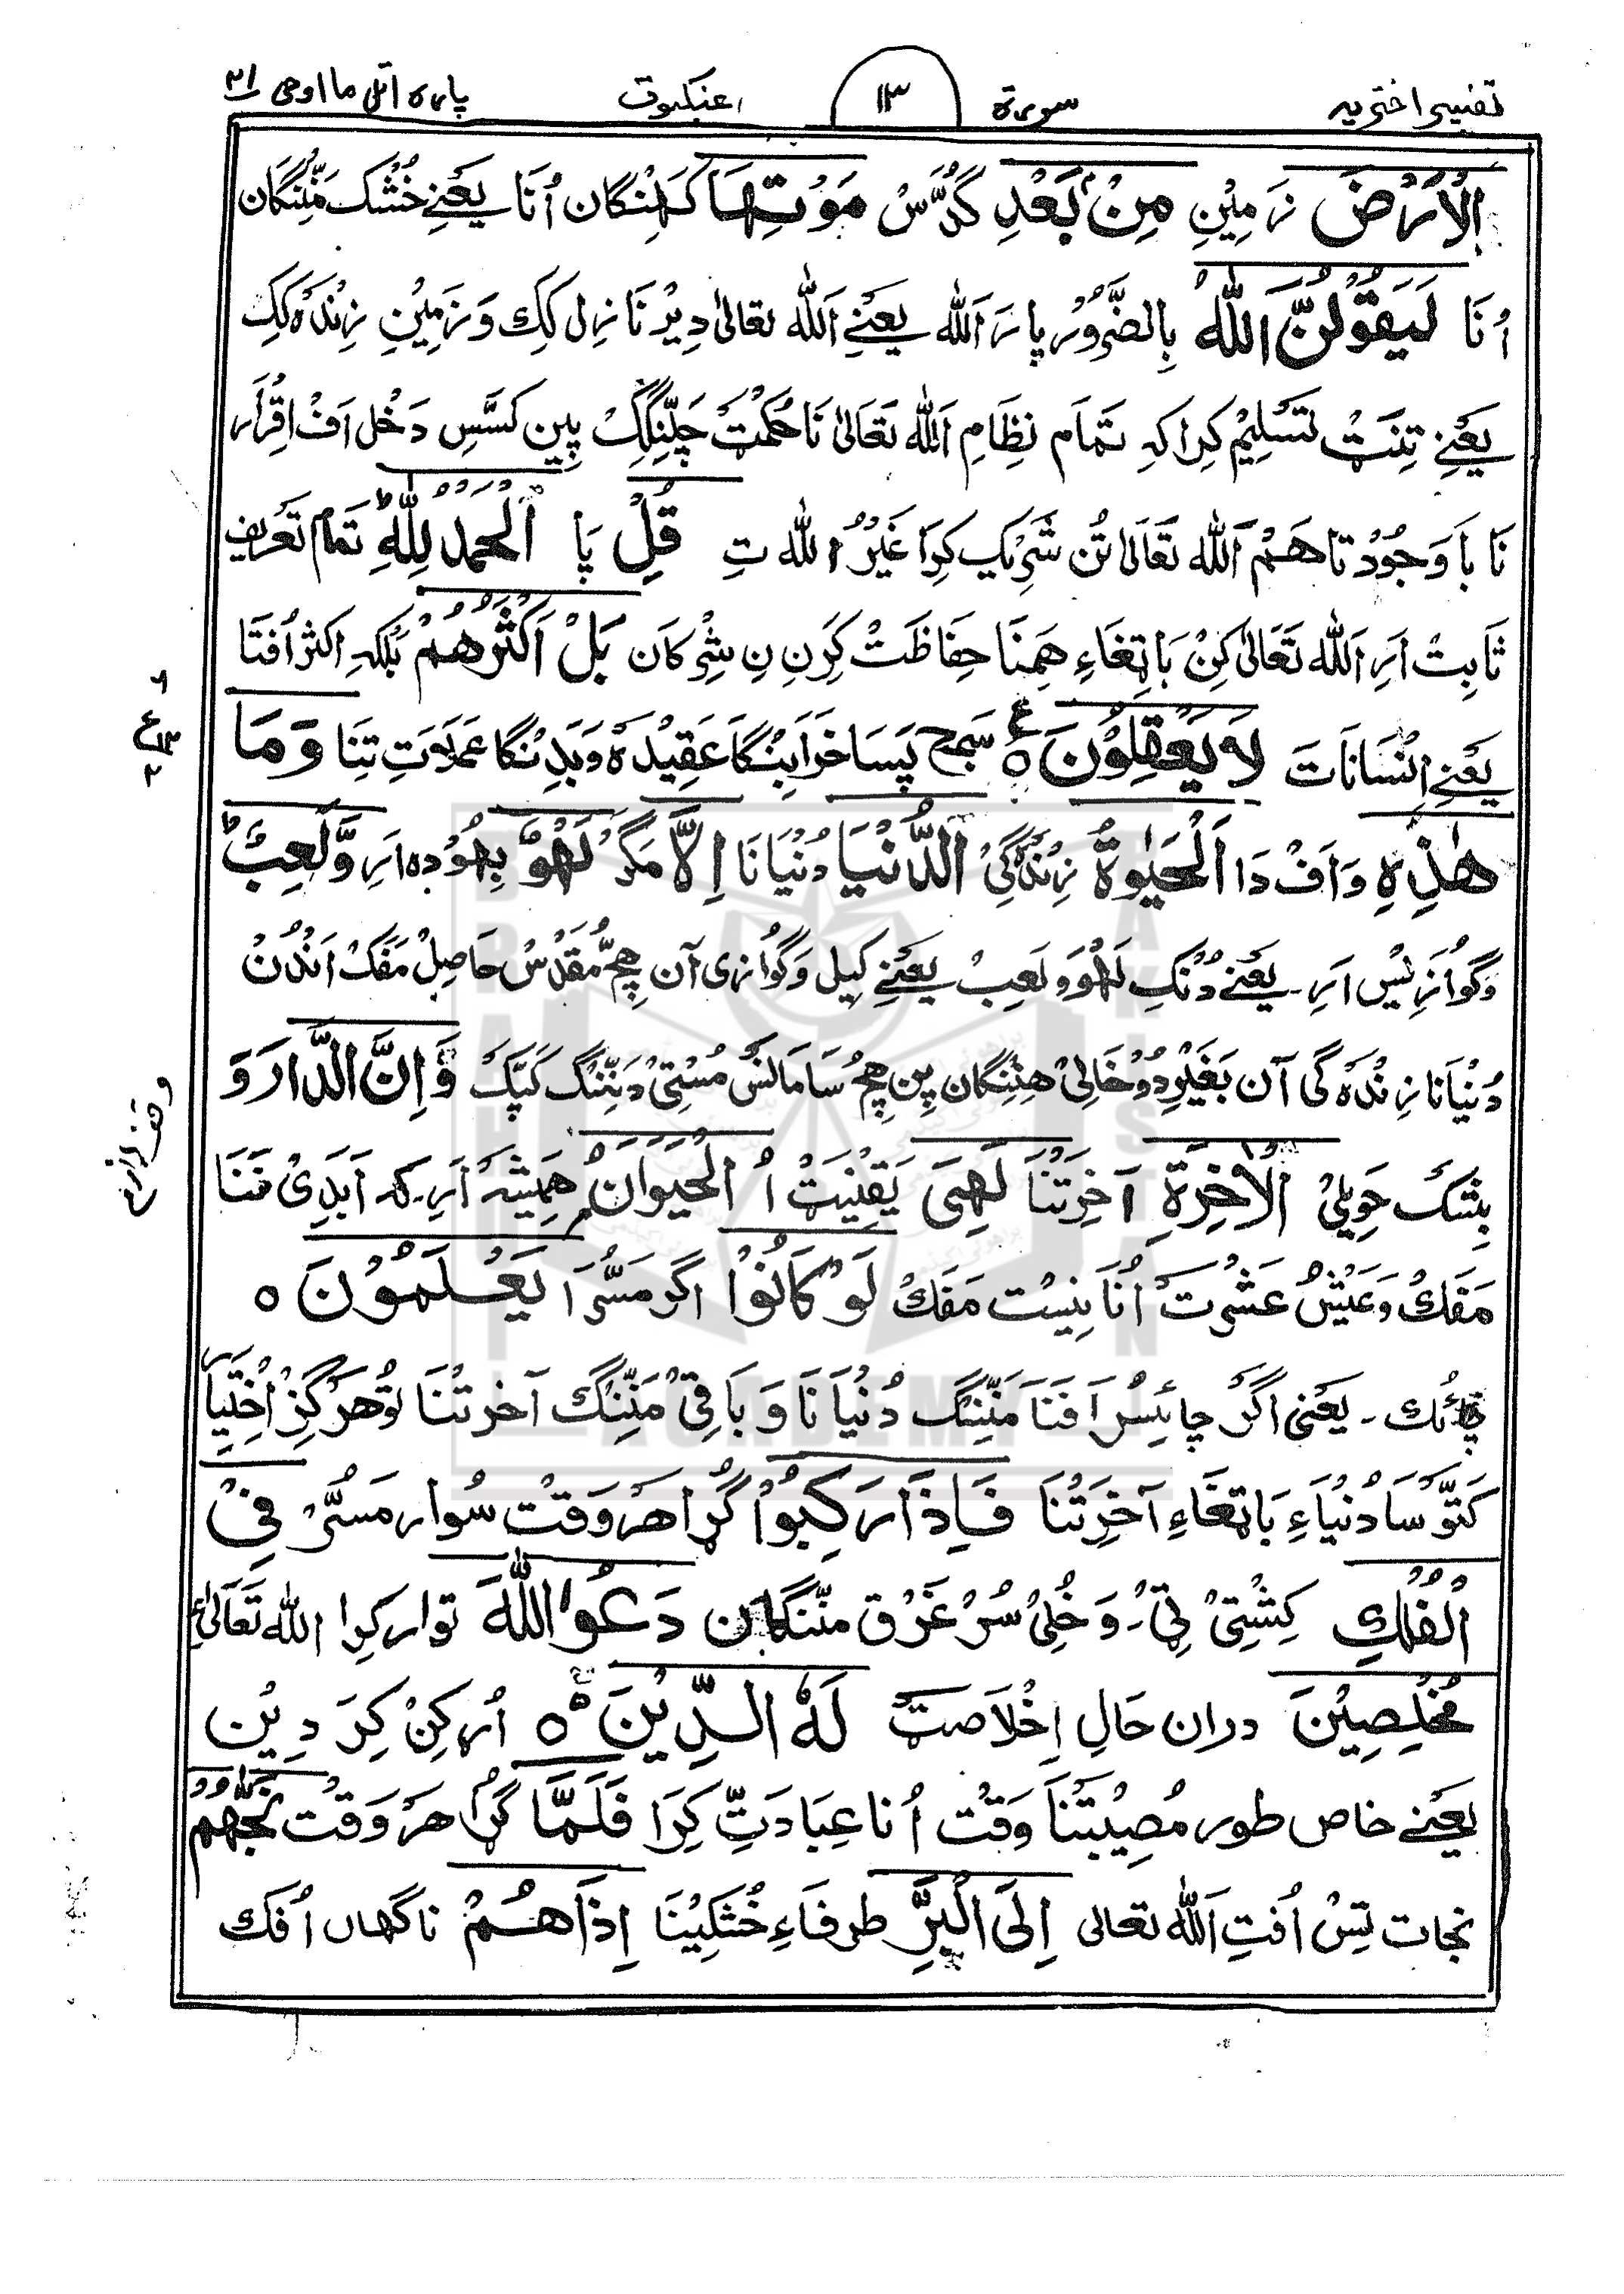 تفسیر اختریہ سورۃ ۱۳ عنکبوت پارہ اتل ما اوحی ۲۱
الْاَرْضَ زَمِیْنِ مِنْۢ بَعْدِ گُدَّسْ مَوْتِهَا کَہِنْگان اُنَا یعَنِے خُشک مَنِّنْگان
اُنَا لَيَقُوْلُنَّ اللّٰهُ بِالضَّرُوْر پارَ اَللہ یعَنِے اَللہ تعَالیٰ دِیْر نَازِل کِک وَزَمِیْنِ زِنْدَہ کِک
یعَنِے تِنَتْ تَسْلِیْم کِرَا کہِ تَمَام نِظَامِ اَللہ تَعَالیٰ نَا حُکمَتْ چَلِّنِگِکْ پِین کَسَّسِ دَخْل اَفْ اِقْرَار
نَا بَا وَجُوْد تا هَمْ اَللہ تَعَالیٰ تُن شَرِیک کِرَا غَیْرُ اللہ تِ قُلِ پَا اَلْحَمْدُ لِلّٰهِؕ تَمَام تَعْرِیف
ثَابِتْ اَرِ اَللہ تَعَالیٰ کِنْ بَاتِغَاءِ هِمنَا حِفَاظَتْ کَرِن نِ شِرْکان بَلْ اَكْثَرُهُمْ بَلکہِ اکثر اُفتَا
یعَنِے اِنْسَانَاتَ لَا يَعْقِلُوْنَ۠ ع سَمج پَسَا خَرَابَنْگَا عَقِیْدَہ وَبَدِنْگا عَمَلاتِ تِنَا وَمَا
۶ ع ۱۳ ۲
هٰذِهِ وَاَفْ دَا الْحَيٰوةُ زِنْدَگِیْ الدُّنْيَا دُنْیَا نَا اِلَّا مَگَر لَهْوٌ بِهُوْدہ اَرِ وَّلَعِبٌؕ
وگوَازِیْس اَرِ۔ یعَنے دُنْکِ لَهْوَ و لَعِبْ یعَنِے کِیل وَگوَازی آن هِچّ مُقَدْس حَاصِلْ مَفَکْ اَنْدُنْ
دُنْیَانا زِنْدَہ گی آن بَغَیْرِ دُو خَالِیْ هِنِنِگان پِن هِچُ سَامَانَسْ مُسْتِیْ دَنِّنْگ کَپَّکْ وَاِنَّ الدَّارَ وَ
بِشَکْ حَوِیلِیْ الْاٰخِرَةَ آخِرَتْنَا لَهِىَ یَقِیْنِیَتْ اُ الْحَيَوَانُۘ هَمِیْشَہ اَرِ۔ کہ اَبَدِیْ فَنَا
وقف لازم
مَفَکُ وَعَیْشُ عَشْرتَ اُنَا نِیْسْت مَفَکْ لَوْ كَانُوْا اگر مَسُّرَا يَعْلَمُوْنَ ہ
چائک ۔ یعَنیْ اگَر چائِسُر اَفَنَا مَنِّنِگ دُنْیَا نَا وَ بَاقِیْ مَنِّنِگْ آخرتْنَا تُو هَرْگِزْ اُخْتِیَار
کَتّوَسَا دُنْیَاءِ بَاتِغَاءِ آخِرَتْنَا فَاِذَا رَكِبُوْا گُڑا هَرْ وَقتْ سُوار مَسُّرْ فِى
الْفُلْكِ کِشْتِیْ ٹِیْ ۔ وَخُلِیْ سُرْ غَرْق مَنّنگان دَعَوُا اللّٰهَ توار کِرا اللہ تَعَالیٰ
مُخْلِصِيْنَ دران حَالِ اِخْلَاصَتْ لَهُ الدِّيْنَ ہ اُرکِنْ کِرَ دِیْن
یعَنِے خاص طور مُصِیْبَتْنَا وَقت اُنا عِبَادَتِّ کِرَا فَلَمَّا گُڑا هَرْ وَقت نَجّٰهُمْ
نجات تِسْ اُفتِ اَللہ تعالی اِلَى الْبَرِّ طرفاءِ خُشکِیْنَا اِذَا هُمْ ناگهاں اُفک